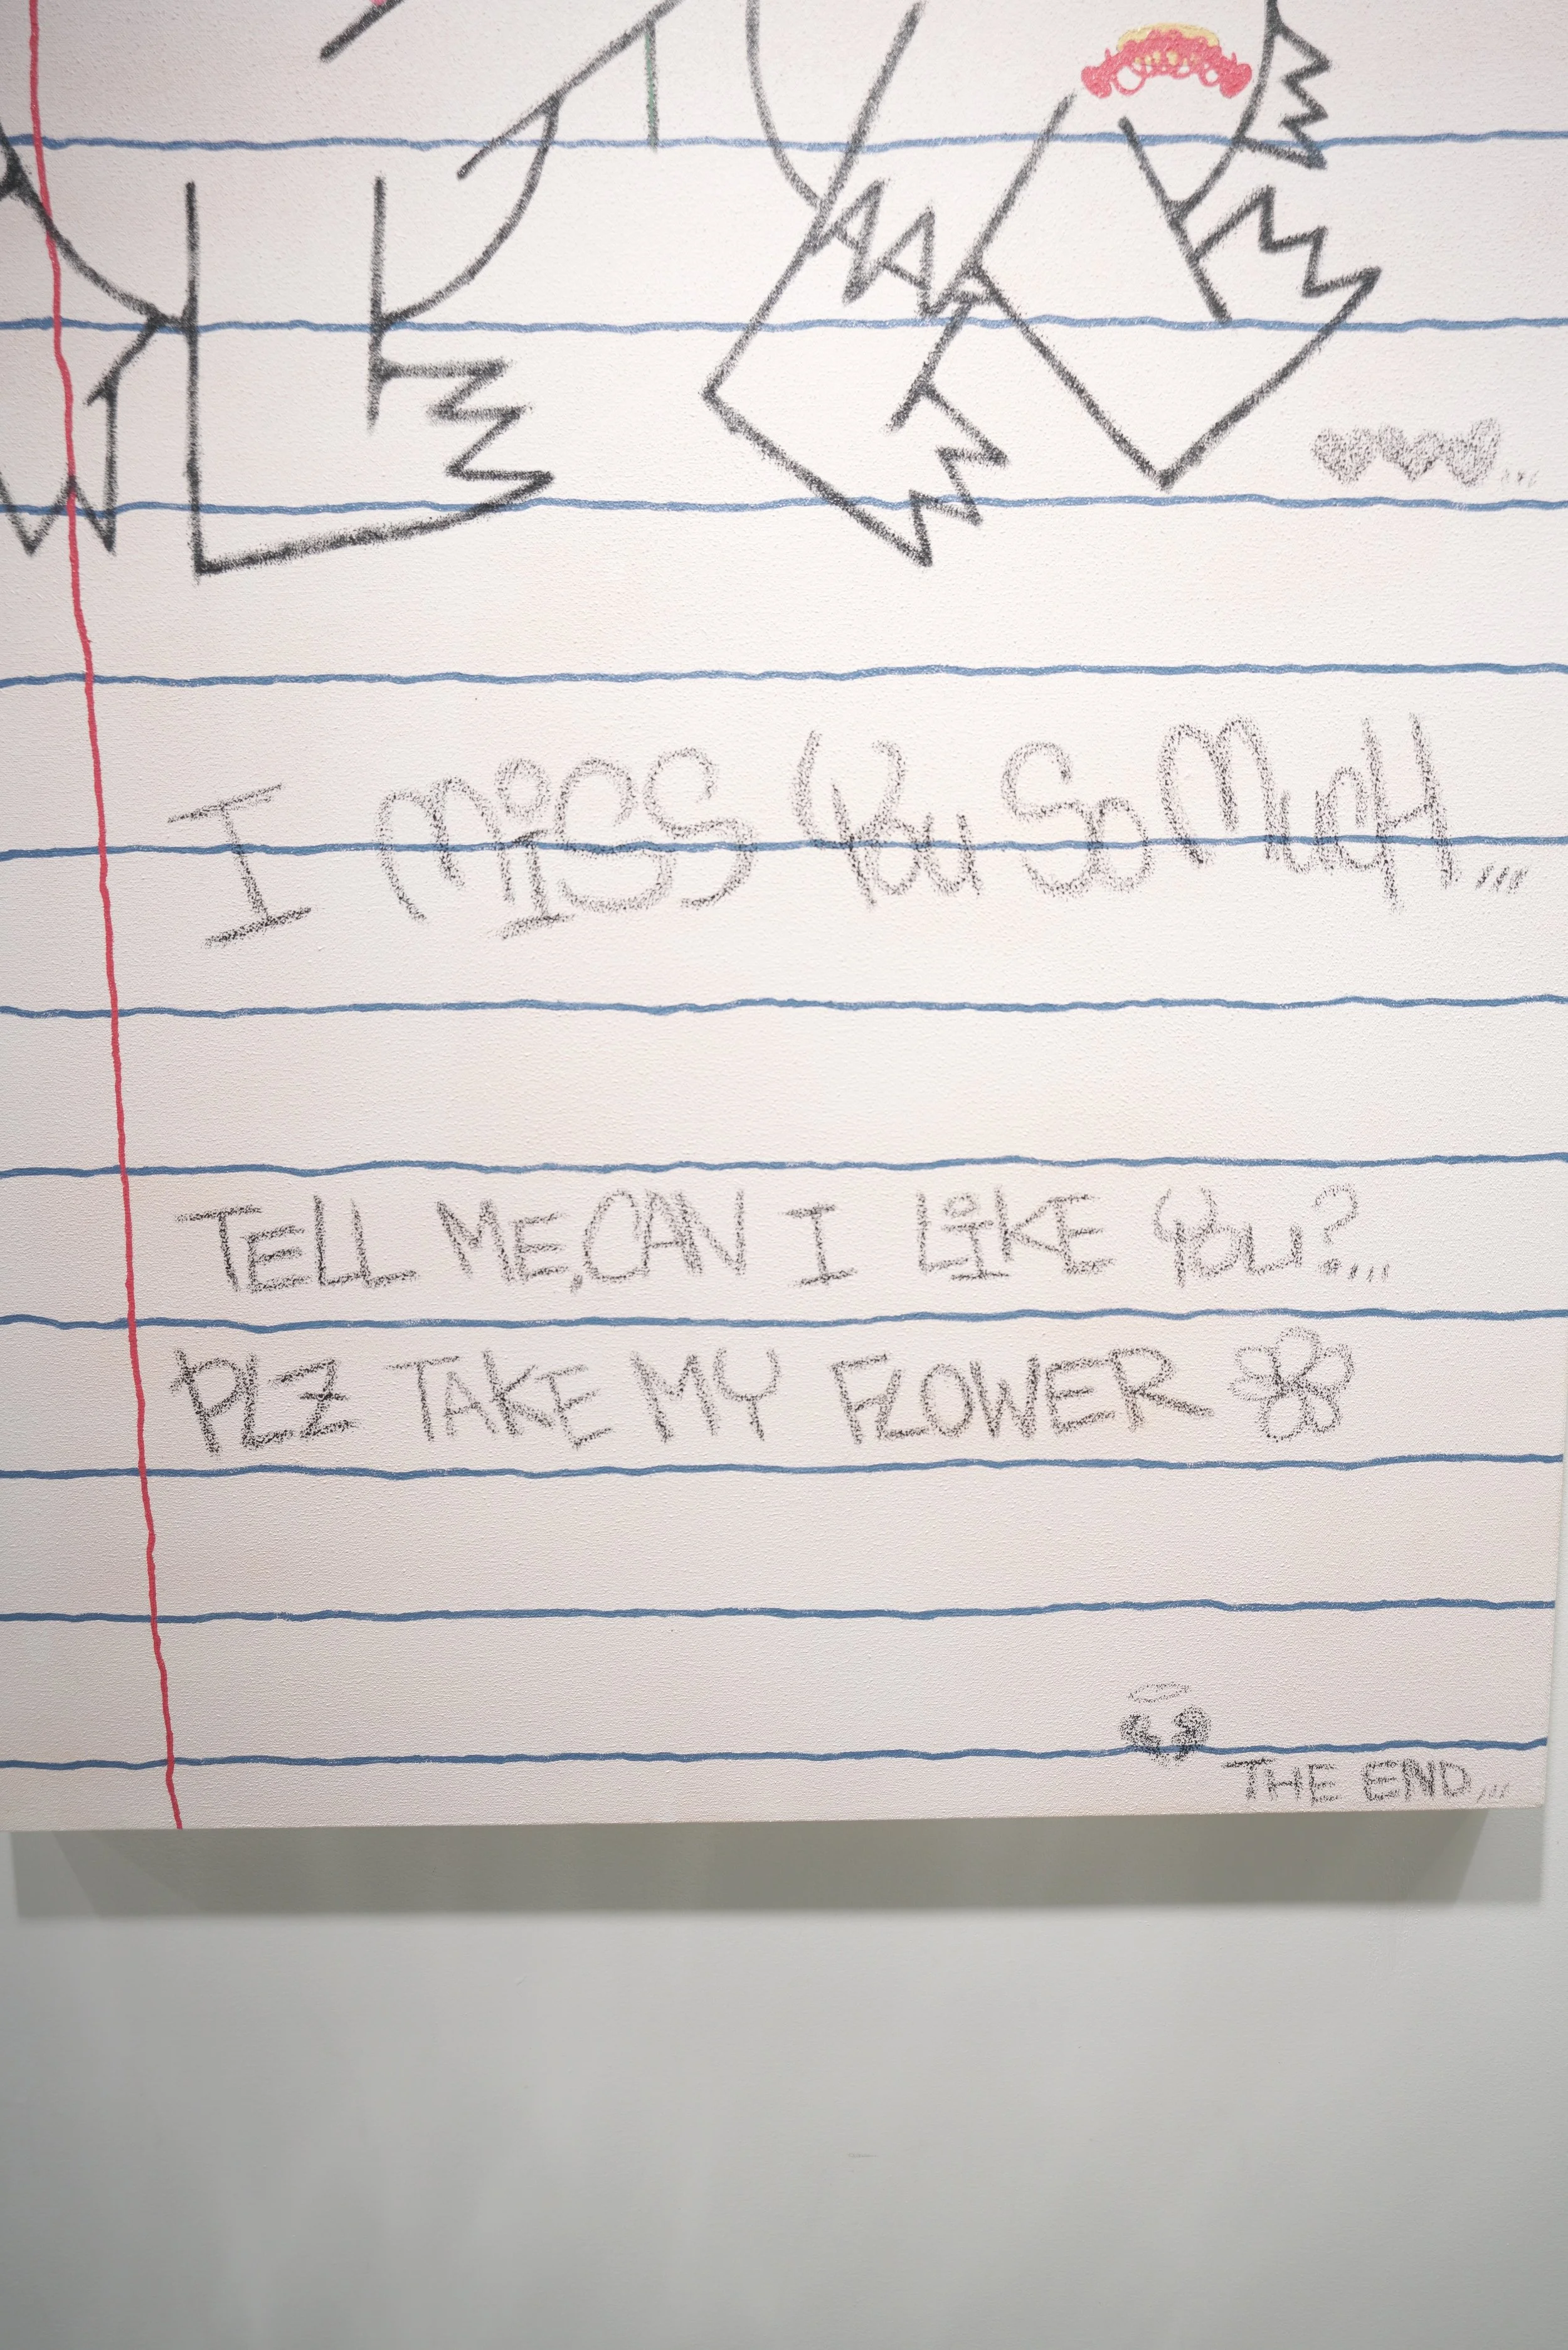 I MiSS You So MucH,,,
TELL ME,CAN I LiKE You?,,,
PLZ TAKE MY FLOWER
THE END,,,